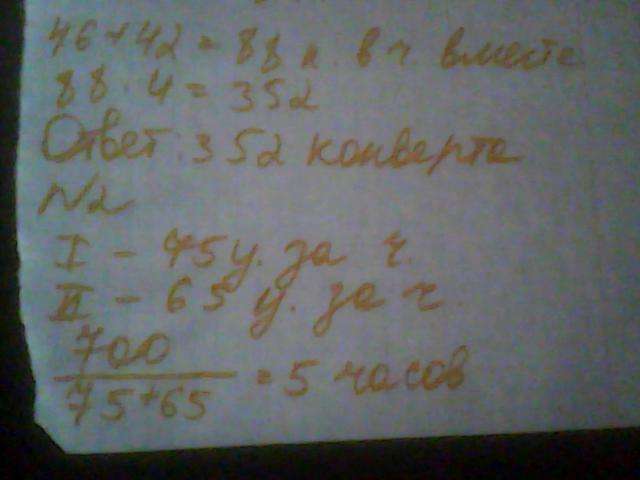 46+42=88 к. в ч. вместе
88·4=352
Ответ: 352 конверта
N2
I - 75 у. за ч.
II - 65 у. за ч.
700
75+65 = 5 часов